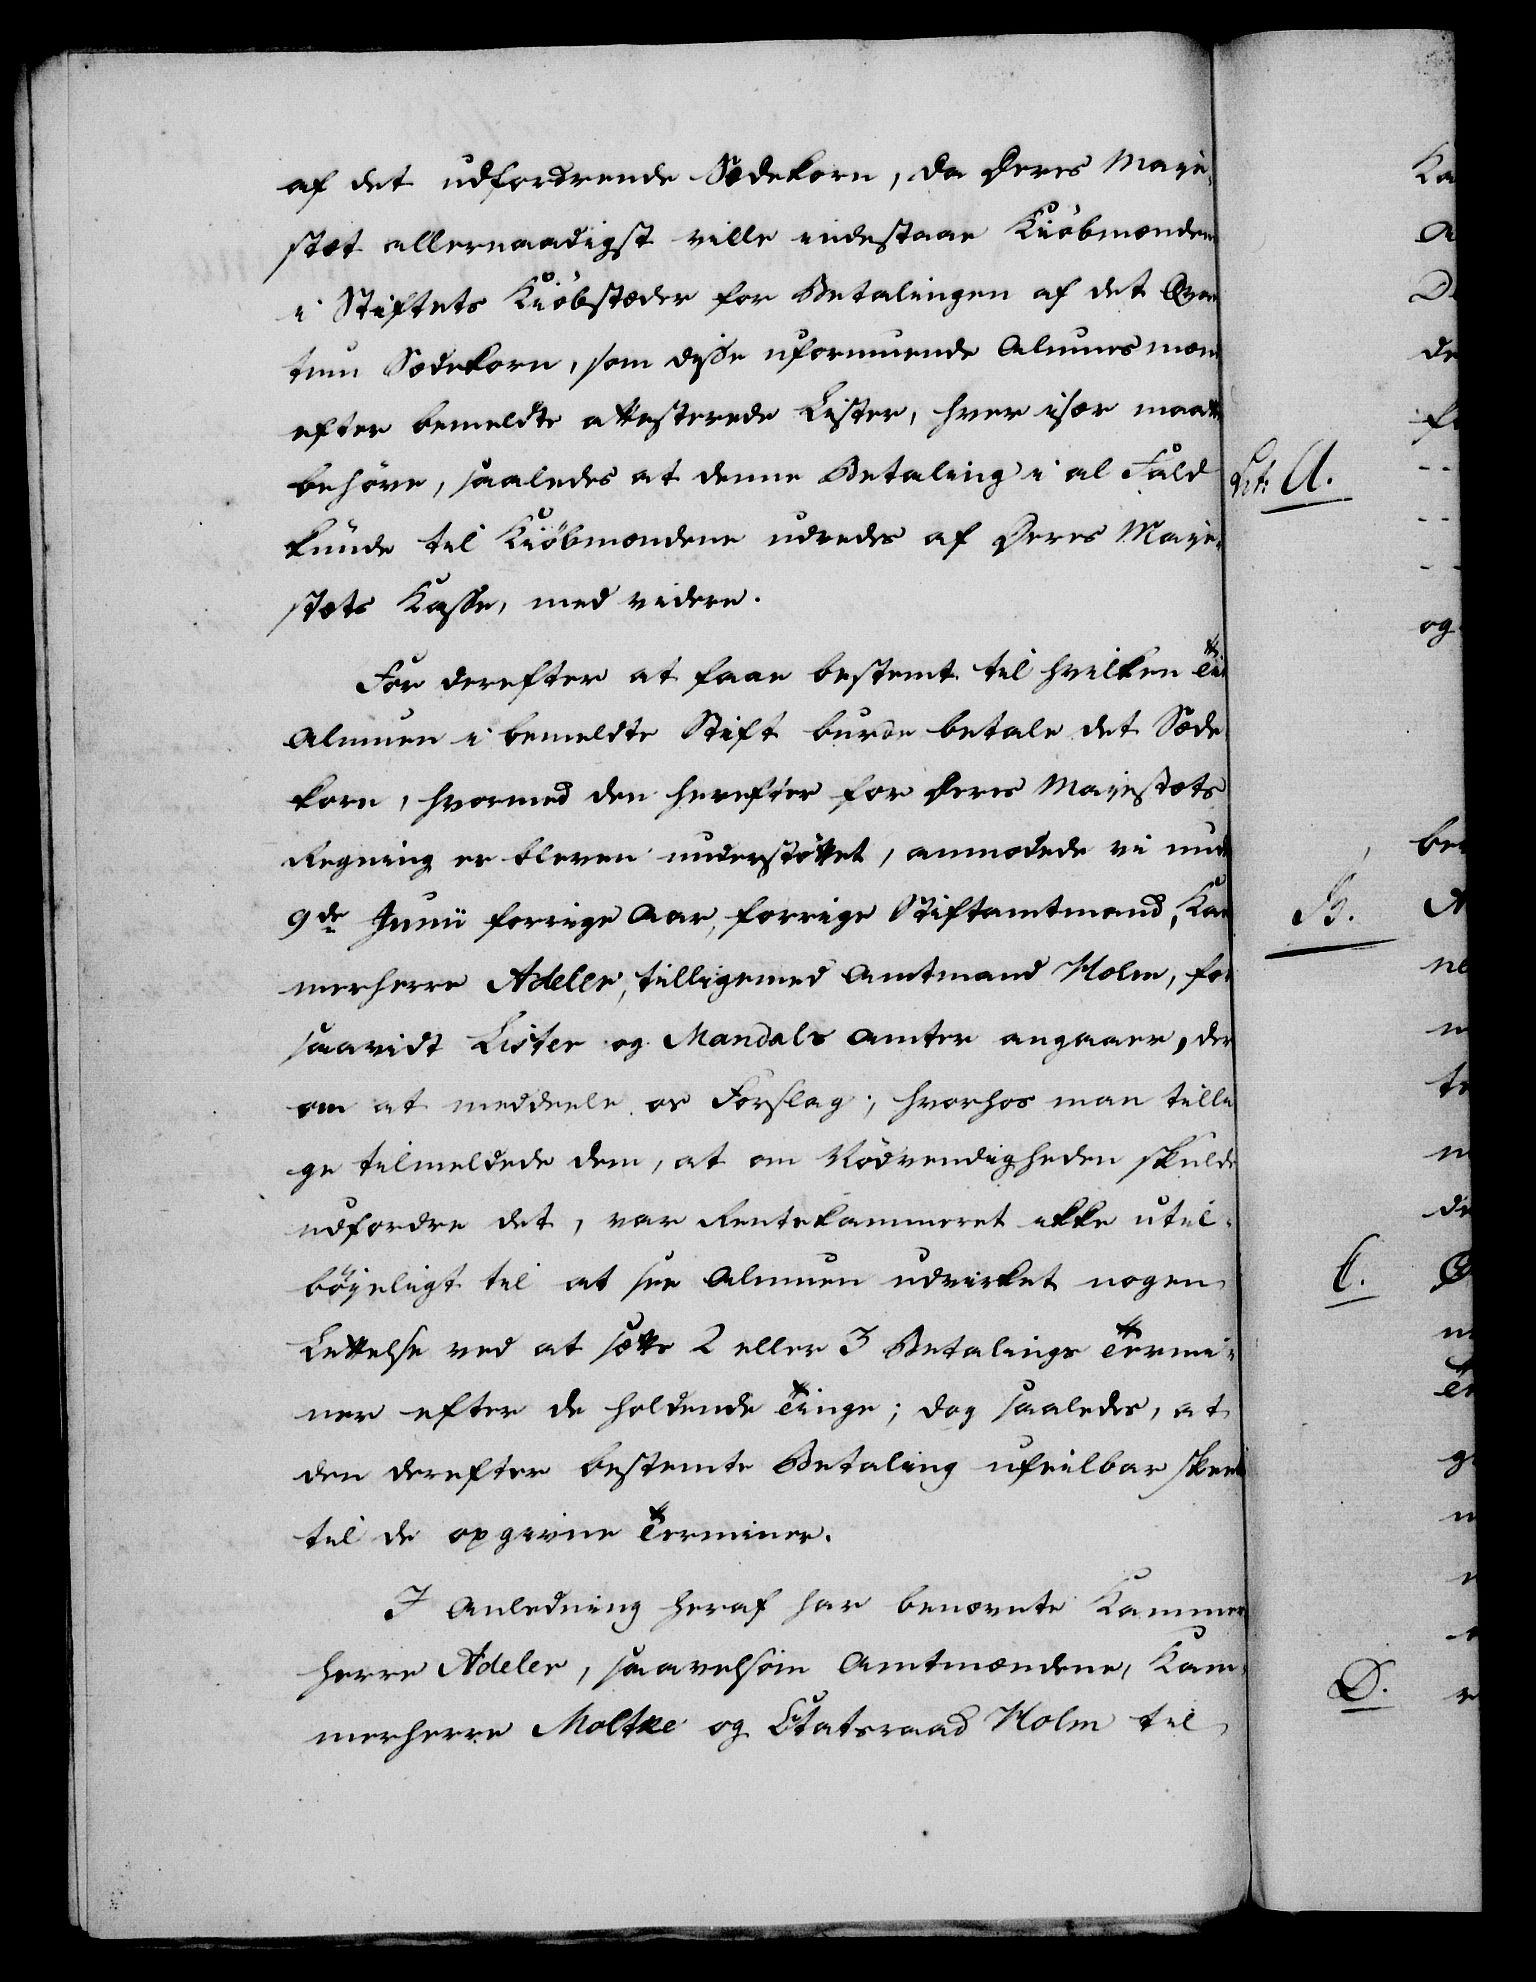 af det udfordrende Sædekorn, da Deres Maje-
stæt allernaadigst ville indestaae Kiöbmændene
i Stiftets Kiöbstæder for Betalingen af det Qvan
tum Sædekorn, som disse uformuende Almuesmænd
efter bemeldte attesterede Lister, hver især maatte
behöve, saaledes at denne Betaling i al Fald
kunde til Kiöbmændene udredes af Deres Maje-
stæts Kasse, med videre.
For derefter at faae bestemt til hvilken Tid
Almuen i bemeldte Stift burde betale det Sæde
korn, hvormed den herefter for Deres Majestæts
Regning er bleven understöttet, anmodede vi under
9de Junii forrige Aar, forrige Stiftamtmand, Kam
merherre Adeler, tilligemed Amtmand Holm, for
saavidt Lister og Mandals Amter angaaer, der
om at meddeele os Forslag; hvorhos man tilli
ge tilmeldede dem, at om Nödvendigheden skulde
udfordre det, var Rentekammeret ikke util-
böjeligt til at see Almuen udvirket nogen
Lettelse ved at sætte 2 eller 3 Betalings Termi-
ner efter de holdende Tinge; dog saaledes, at
den derefter bestemte Betaling ufeilbar skeede
til de opgivne Terminer.
I Anledning heraf har benævnte Kammer
herre Adeler, saavelsom Amtmændene, Kam-
merherre Moltke og Etatsraad Holm til
Lit: A.
B.
C.
D.